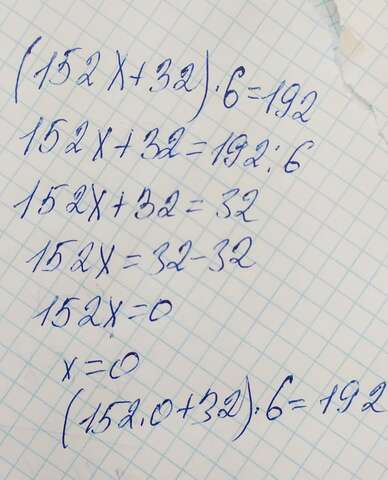 (152x+32)·6=192
152x+32=192:6
152x+32=32
152x=32-32
152x=0
x=0
(152·0+32)·6=192